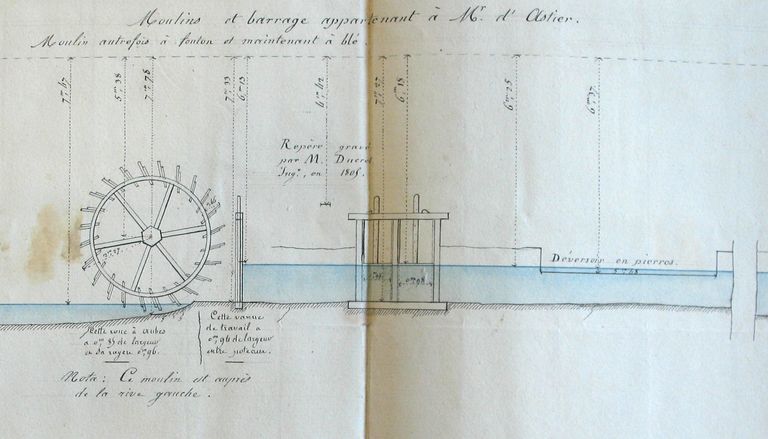 Moulins et barrage appartenant à Mr. d'Astier.
Moulin autrefois à foulon et maintenant à blé.
5m,38
7m,78
7m,33
6m,13
6m,42
7m,27
6m,18
6m,25
6m,37
Repère gravé
par M. Ducros
Ingr., en 1805.
Déversoir en pierres.
0m,98
Cette roue à aubes
a 0m 85 de largeur
et sa rayère 0m,96.
Cette vanne
de travail a
0m,96 de largeur
entre poteaux.
Nota: Ce moulin est auprès
de la rive gauche.